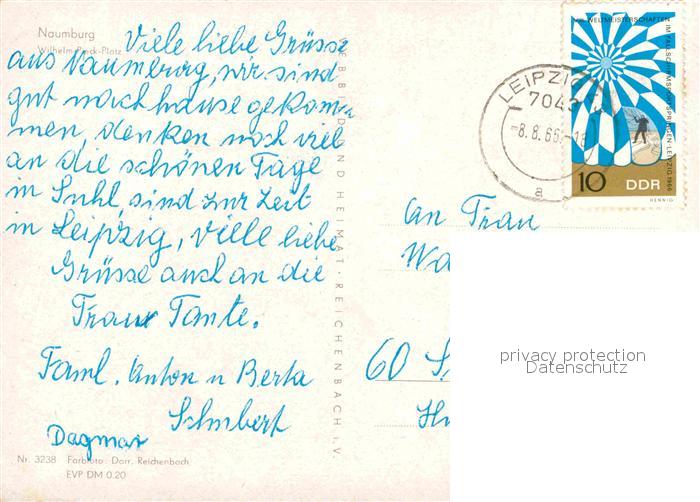 Naumburg
Wilhelm-Pieck-Platz
Viele liebe Grüsse
aus Naumburg, wir sind
gut nachhause gekom-
men, denken noch viel
an die schönen Tage
in Suhl, sind zur Zeit
in Leipzig, Viele liebe
Grüsse auch an die
Frau Tante.
Faml. Anton u Berta
Schubert
Dagmar
Nr. 3238 Farbfoto: Darr, Reichenbach
EVP DM 0.20
BILD UND HEIMAT · REICHENBACH i. V.
LEIPZIG
-8.8.66.-18
a
WELTMEISTERSCHAFTEN IM FALLSCHIRMSPORTSPRINGEN · LEIPZIG 1966
10 DDR
HENNIG
An Frau
Wa
60 S
privacy protection
Datenschutz